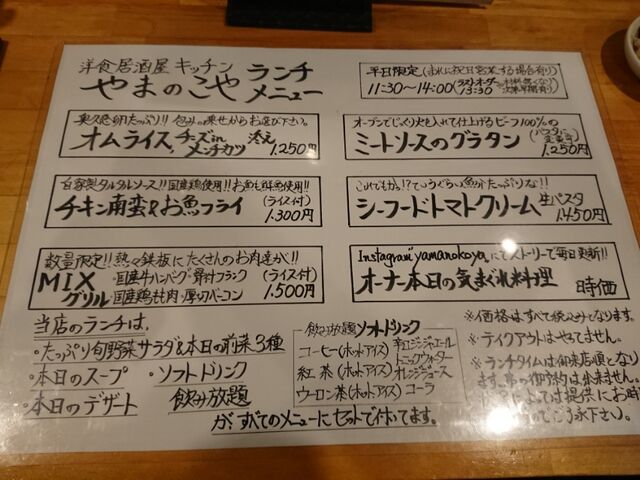 洋食居酒屋 キッチン
やまのこや ランチメニュー
平日限定(まれに祝日営業する場合有り)
11:30~14:00(ラストオーダー 13:30
奥久慈卵たっぷり!! 包み or 乗せからお選び下さい。
オムライス, チーズinメンチカツ 添え 1.250円
オーブンでじっくり火を入れて仕上げるビーフ100%の
ミートソースのグラタン 1.250円
自家製タルタルソース!! 国産鶏使用!! お魚も鮮魚使用!!
チキン南蛮&お魚フライ (ライス付) 1.300円
これでもか!?てぃうぐらい魚介たっぷりな!!
シーフードトマトクリーム 生パスタ 1.450円
数量限定!! 熱々鉄板にたくさんのお肉達が!!
MIXグリル ・国産牛ハンバーグ・骨付フランク (ライス付)
・国産鶏モモ肉・厚切ベーコン 1.500円
Instagram "yamanokoya" にてストーリーで毎日更新!!
オーナー本日の気まぐれ料理 時価
当店のランチは、
・たっぷり旬野菜サラダ&本日の前菜3種
・本日のスープ ・ソフトドリンク
・本日のデザート 飲み放題
が、すべてのメニューにセットで付いてます。
飲み放題 ソフトドリンク
コーヒー(ホットアイス) 辛口ジンジャエール
紅茶(ホットアイス) トニックウォーター
ウーロン茶(ホットアイス) オレンジジュース
コーラ
※価格はすべて税込みとなります。
※テイクアウトはやってません。
※ランチタイムは御来店順となり
ます、席の御予約は出来ません。
によっては提供にお時